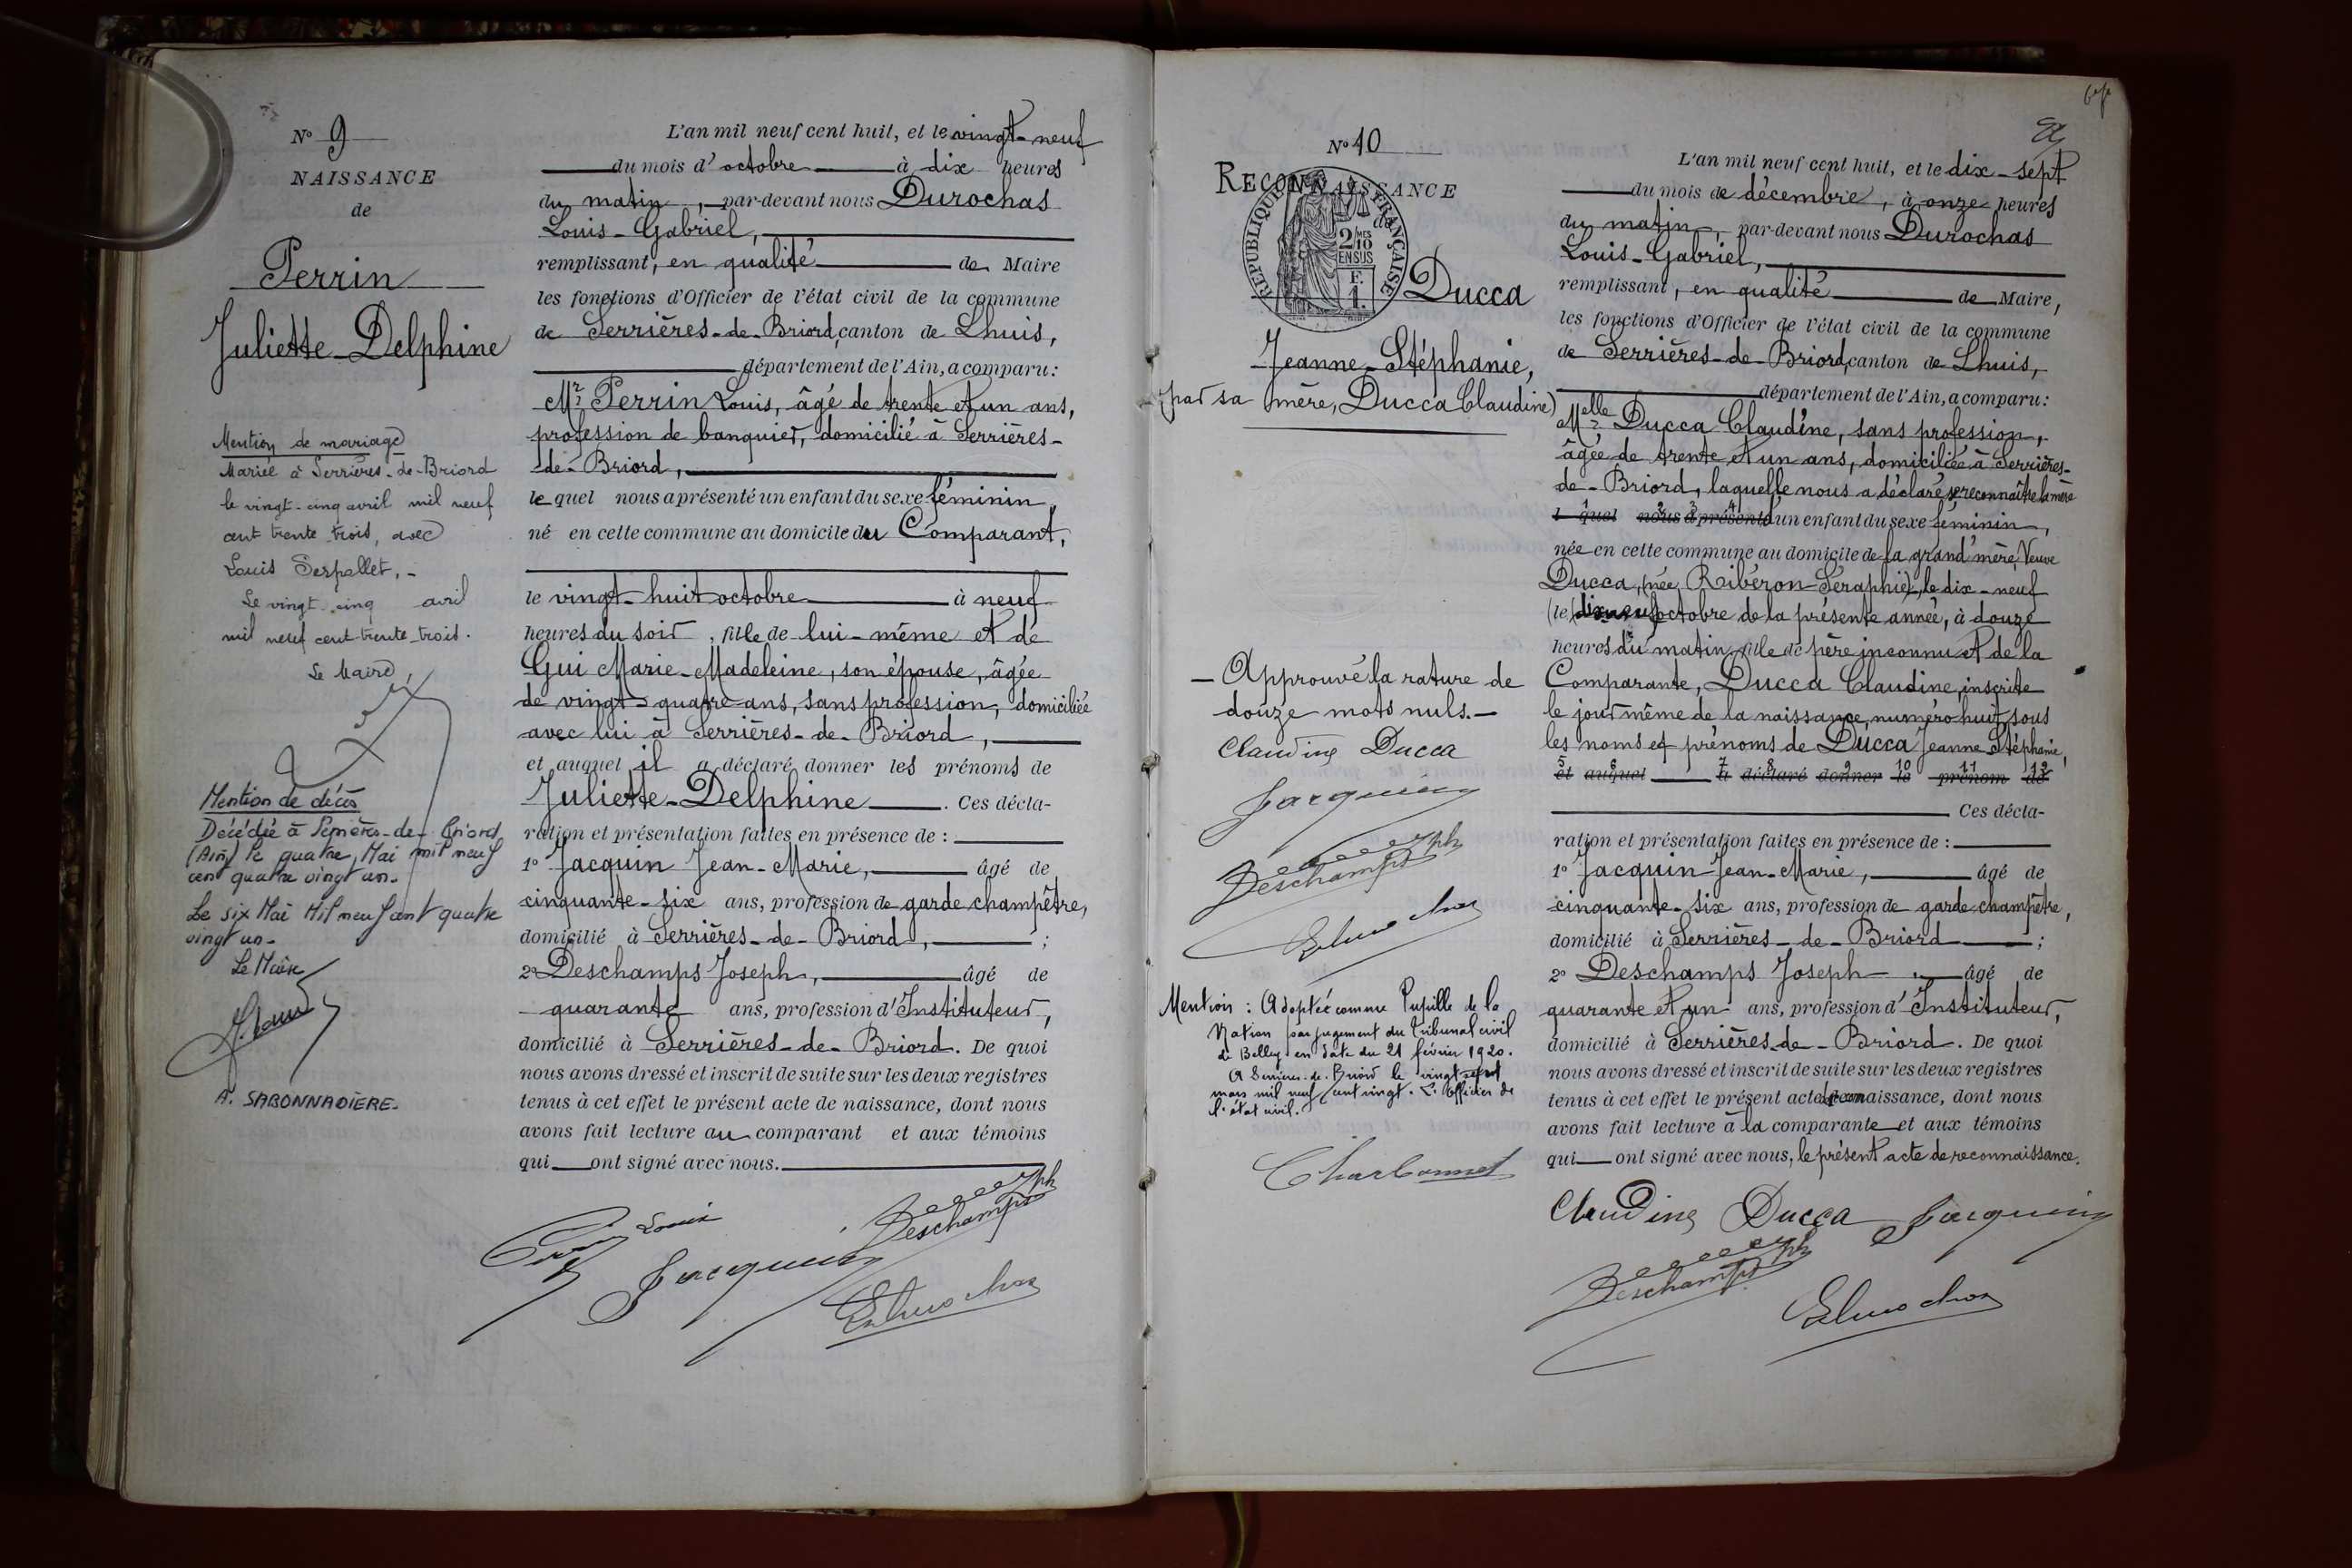 N° 9
NAISSANCE
de
Perrin
Juliette-Delphine
Mention de mariage
Mariée à Serrières-de-Briord
le vingt-cinq avril mil neuf
cent trente trois, avec
Louis Serpollet.-
Le vingt-cinq avril
mil neuf cent trente-trois.
Le Maire,
Mention de décès
Décédée à Serrières-de-Briord
(Ain) le quatre Mai mil neuf
cent quatre vingt un.
Le six Mai Mil neuf cent quatre
vingt un-
Le Maire
A. SABONNADIERE.
L'an mil neuf cent huit, et le vingt-neuf
du mois d'octobre à dix heures
du matin, par-devant nous Durochas
Louis-Gabriel,
remplissant, en qualité de Maire
les fonctions d'Officier de l'état civil de la commune
de Serrières-de-Briord, canton de Lhuis,
département de l'Ain, a comparu:
Mr Perrin Louis, âgé de trente et un ans,
profession de banquier, domicilié à Serrières-
de-Briord,
le quel nous a présenté un enfant du sexe féminin,
né en cette commune au domicile du Comparant,
le vingt-huit octobre à neuf
heures du soir, fille de lui-même et de
Gui Marie-Madeleine, son épouse, âgée
de vingt-quatre ans, sans profession, domiciliée
avec lui à Serrières-de-Briord,
et auquel il a déclaré donner les prénoms de
Juliette-Delphine. Ces décla-
ration et présentation faites en présence de :
1° Jacquin Jean-Marie, âgé de
cinquante-six ans, profession de garde champêtre,
domicilié à Serrières-de-Briord, ;
2° Deschamps Joseph, âgé de
quarante ans, profession d'Instituteur,
domicilié à Serrières-de-Briord. De quoi
nous avons dressé et inscrit de suite sur les deux registres
tenus à cet effet le présent acte de naissance, dont nous
avons fait lecture au comparant et aux témoins
qui ont signé avec nous.
Perrin Louis
Jacquin
Deschamps Jph
Durochas
N° 10
RECONNAISSANCE
de
REPUBLIQUE FRANÇAISE
2/10 MES
EN SUS
F.
1.
Ducca
Jeanne-Stéphanie,
(par sa mère, Ducca Claudine)
- Approuvé la rature de
douze mots nuls.-
Claudine Ducca
Jacquin
Deschamps Jph
Durochas
Mention : Adoptée comme Pupille de la
Nation par jugement du Tribunal civil
de Belley en date du 21 février 1920.
A Serrières-de-Briord le vingt sept
mars mil neuf cent vingt. L'officier de
l'état civil.
Charbonnet
L'an mil neuf cent huit, et le dix-sept
du mois de décembre, à onze heures
du matin, par-devant nous Durochas
Louis-Gabriel,
remplissant, en qualité de Maire,
les fonctions d'Officier de l'état civil de la commune
de Serrières-de-Briord, canton de Lhuis,
département de l'Ain, a comparu:
Melle Ducca Claudine, sans profession,
âgée de trente et un ans, domiciliée à Serrières-
de-Briord, laquelle nous a déclaré se reconnaître la mère
l quel nous a présenté d'un enfant du sexe féminin,
née en cette commune au domicile de la grand'mère, Veuve
Ducca, (née Ribéron Séraphie), le dix-neuf
(le dix neuf) octobre de la présente année, à douze
heures du matin, fille de père inconnu et de la
Comparante, Ducca Claudine, inscrite
le jour même de la naissance, numéro huit, sous
les noms et prénoms de Ducca Jeanne Stéphanie,
et auquel a déclaré donner le prénom de
Ces décla-
ration et présentation faites en présence de :
1° Jacquin Jean-Marie, âgé de
cinquante-six ans, profession de garde champêtre,
domicilié à Serrières-de-Briord ;
2° Deschamps Joseph, âgé de
quarante et un ans, profession d'Instituteur,
domicilié à Serrières-de-Briord. De quoi
nous avons dressé et inscrit de suite sur les deux registres
tenus à cet effet le présent acte de reconnaissance, dont nous
avons fait lecture à la comparante et aux témoins
qui ont signé avec nous, le présent acte de reconnaissance.
Claudine Ducca Jacquin
Deschamps Jph
Durochas